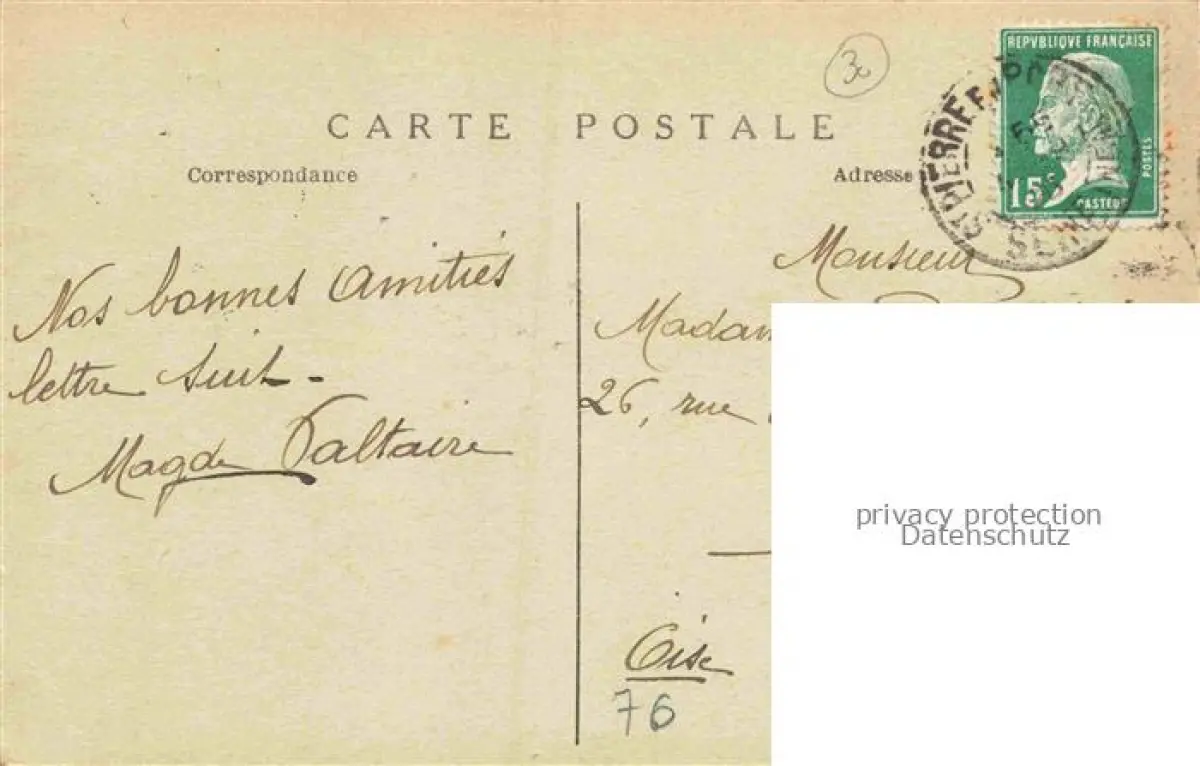 3c
REPVBLIQUE FRANÇAISE
POSTES
15c
PASTEUR
ST PIERRE EN PORT
CARTE POSTALE
Correspondance
Adresse
Nos bonnes amitiés
lettre suit -
Magde
Monsieur
Madam
26, rue
Oise
76
privacy protection
Datenschutz